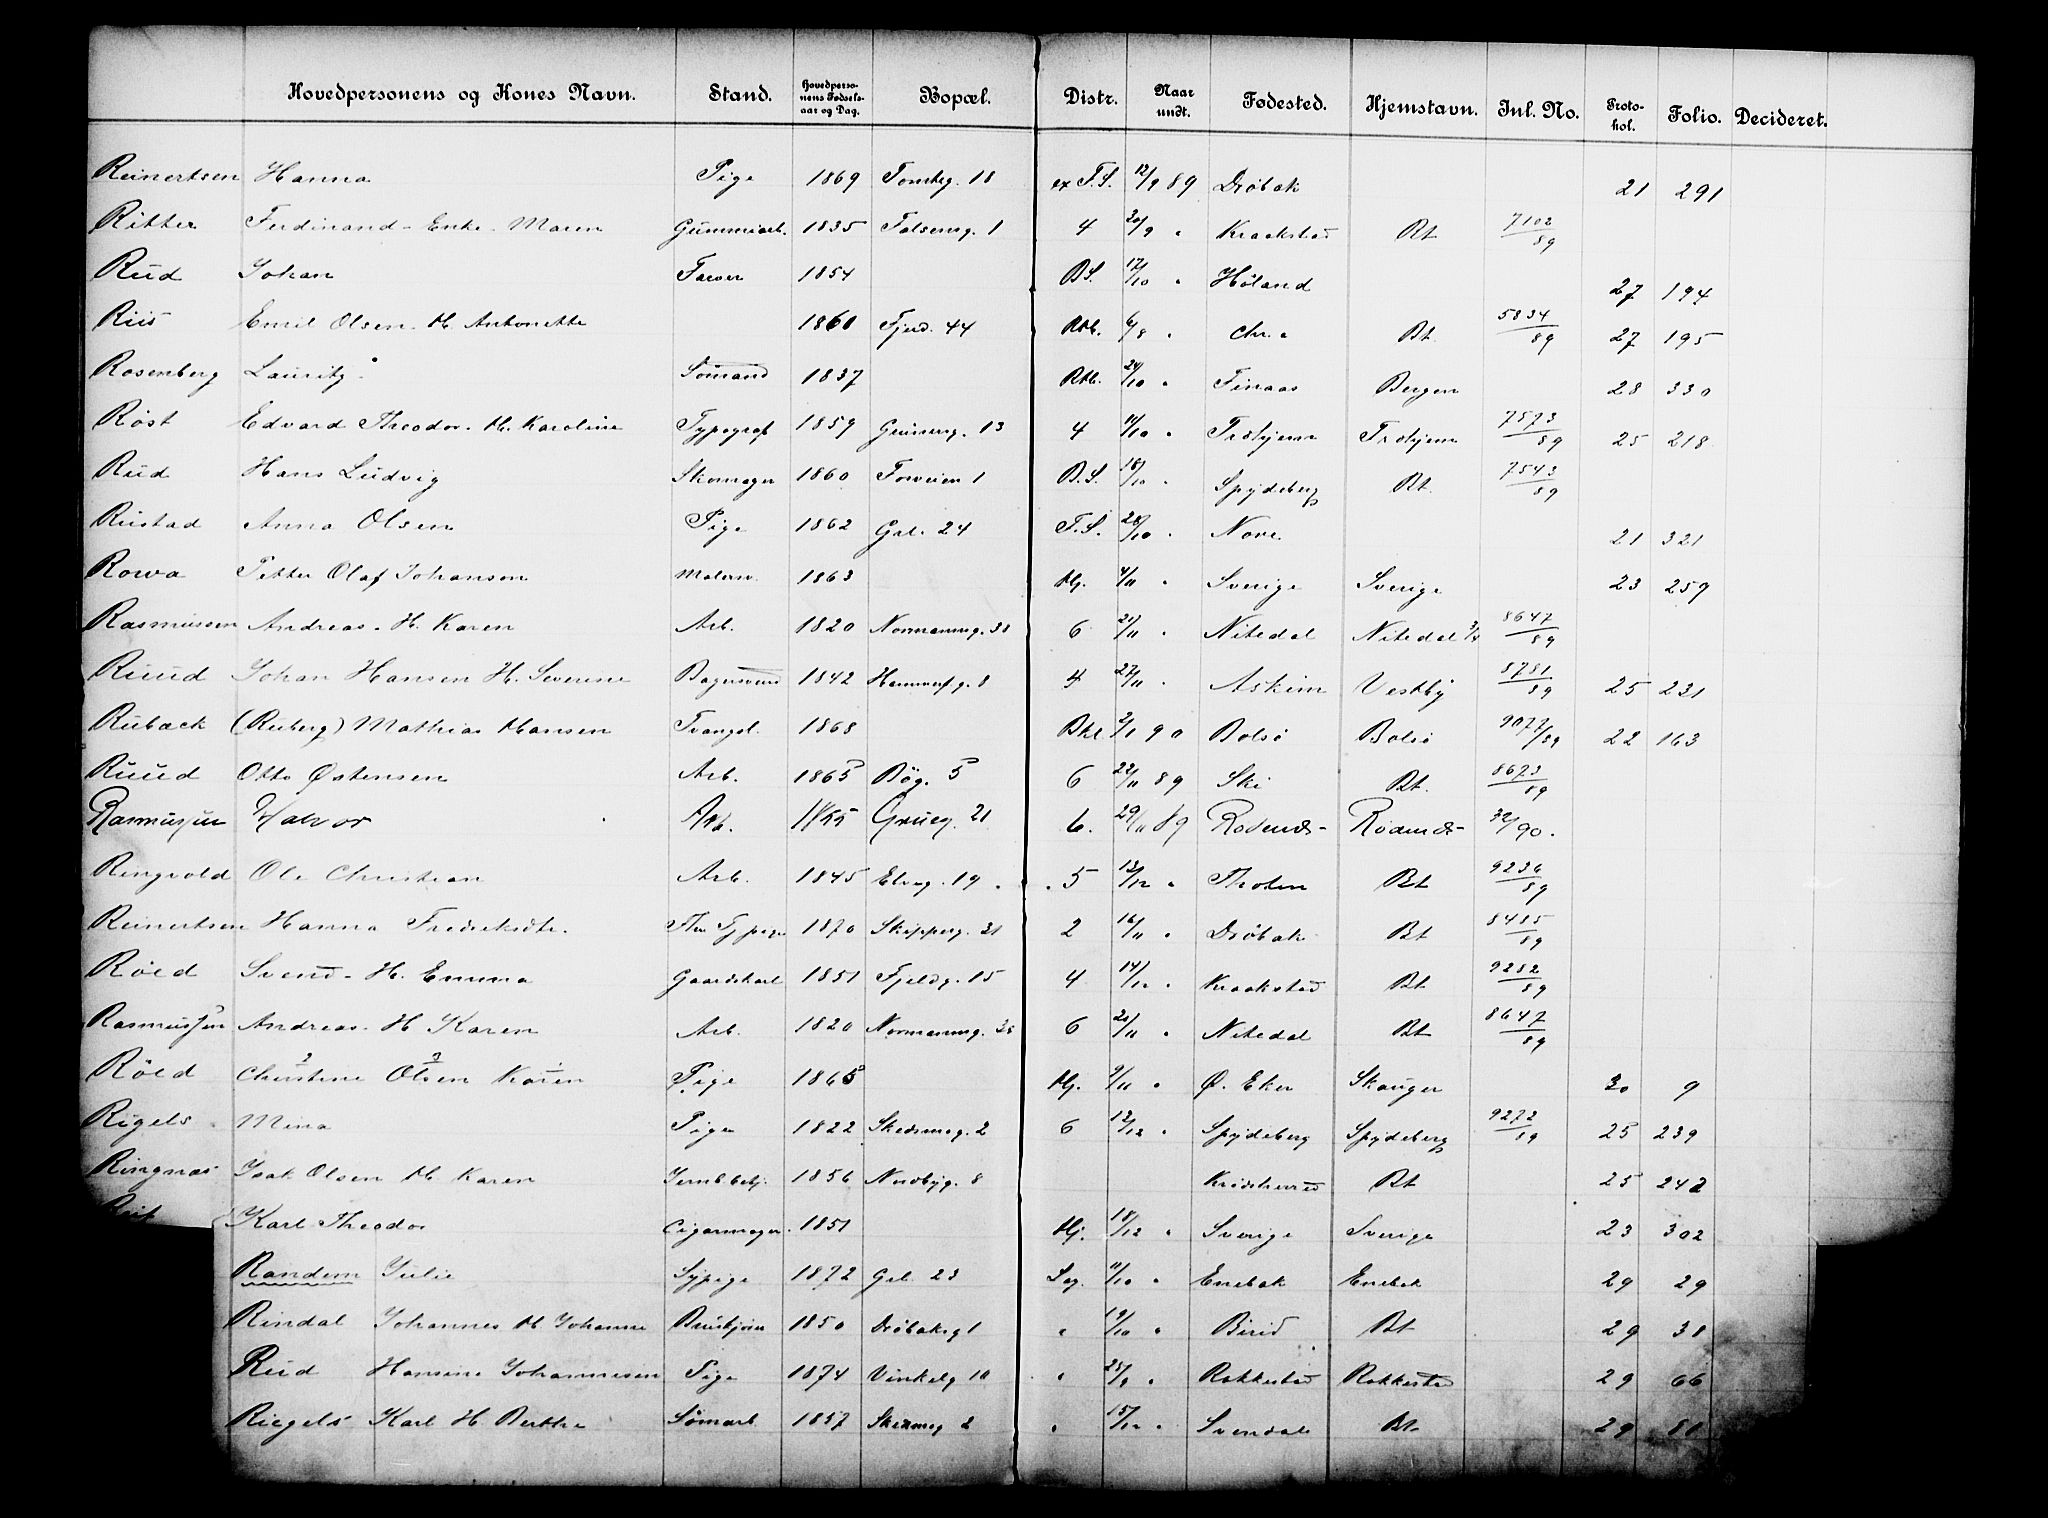 Hovedpersonens og Kones Navn. Stand. Hovedpersonens Fødselsaar og Dag. Bopæl. Distr. Naar undt. Fødested. Hjemstavn. Jnl. No. Protokol. Folio. Decideret.
Reinertsen Hanna Pige 1869 18 ex F.S. 12/9 89 Drøbak 21 291
Ritter Ferdinand - Enke - Maren Gummiarb. 1835 Falsensg. 1 4 20/9 " Kraakstad Bt 7102/89
Rud Johan Farver 1854 BS. 17/10 " Høland 27 194
Riis Emil Olsen - H. Antonette 1860 Fjerd. 44 Rkb. 6/8 " Chr.a Bt. 5834/89 27 195
Rosenberg Lauritz Sømand 1837 Rkb. 24/10 " Finaas Bergen 28 330
Røst Edvard Theodor - H. Karoline Typograf 1859 Grünerg. 13 4 11/10 " Trohjem Trohjem 7573/89 25 218
Rud Hans Ludvig Skomager 1860 Torveien 1 B.S. 18/10 " Spydeberg Bt. 7543/89
Rustad Anna Olsen Pige 1862 Grl. 24 F.S. 28/10 " Nore 21 321
Rowa Petter Olaf Johanson Malersv. 1863 Hj. 4/11 " Sverige Sverige 23 259
Rasmussen Andreas - H. Karen Arb. 1820 Normannsg. 38 6 21/11 " Nitedal Nitedal 3/4 8647/89
Ruud Johan Hansen H. Severine Bagersvend 1842 Hammerfg. 8 4 27/11 " Askim Vestby 8781/89 25 231
Rubæck (Ruberg) Mathias Hansen Tvangsl. 1868 Bkl 2/1 90 Bolsø Bolsø 9077/89 22 163
Ruud Otto Østensen Arb. 1865 Bøg. 5 6 22/11 89 Ski Bt. 8673/89
Rasmussen Halvor Arb. 1855 Grueg. 21 6. 29/11 89 Rødenæs- Rødenæs- 32/90.
Ringvold Ole Christian Arb. 1845 Elveg. 19 5 13/12 " Thoten Bt 9236/89
Reinertsen Hanna Fredriksdtr. Sypige 1870 Skipperg. 31 2 16/11 " Drøbak Bt 8485/89
Røed Svend - H. Emma Gaardskarl 1851 Fjeldg. 15 4 14/12 " Kraakstad Bt 9282/89
Rasmussen Andreas - H Karen Arb. 1820 Normannsg. 38 6 21/11 " Nitedal Bt 8647/89
Røed Christine Olsen Karen Pige 1865 Hj. 9/11 " Ø. Eker Skauger 30 9
Rigels Mina Pige 1822 Skedsmog. 2 6 12/12 " Spydeberg Spydeberg 9272/89 25 239
Ringnæs Isak Olsen H. Karen Jernb.betj. 1856 Nordbyg. 8 Krødsherred Bt 25 242
Karl Theodor Cigarmager 1851 Hj. 18/12 " Sverige Sverige 23 302
Randem Julie Sypige 1872 Grl. 23 Sag. 11/10 " Enebak Enebak 29 29
Rindal Johannes H. Johanne Buntmager 1850 Drøbaksg 1 " 19/10 " Birid Bt 29 38
Rud Hansine Johannesen Pige 1874 Vinkelg 10 " 25/9 " Rakkestad Rakkestad 29 66
Riegels Karl H Berthe Sømarb. 1857 Skedsmog 2 " 15/12 " Bt 29 81